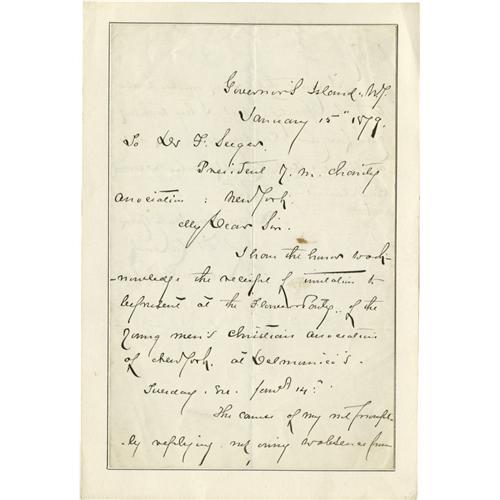 Governor's Island. N.Y.
January 15" 1879.
To Dr F. Seeger.
President Y. m. charity
association : New York.
My Dear Sir.
I have the honor to ack-
-nowledge the receipt of invitation to
be present at the Flower Party. of the
Young men's Christian association
of New York. at Delmonico's.
Tuesday. Eve. Jan'y 14."
The cause of my not prompt-
-ly replying. not being absence from